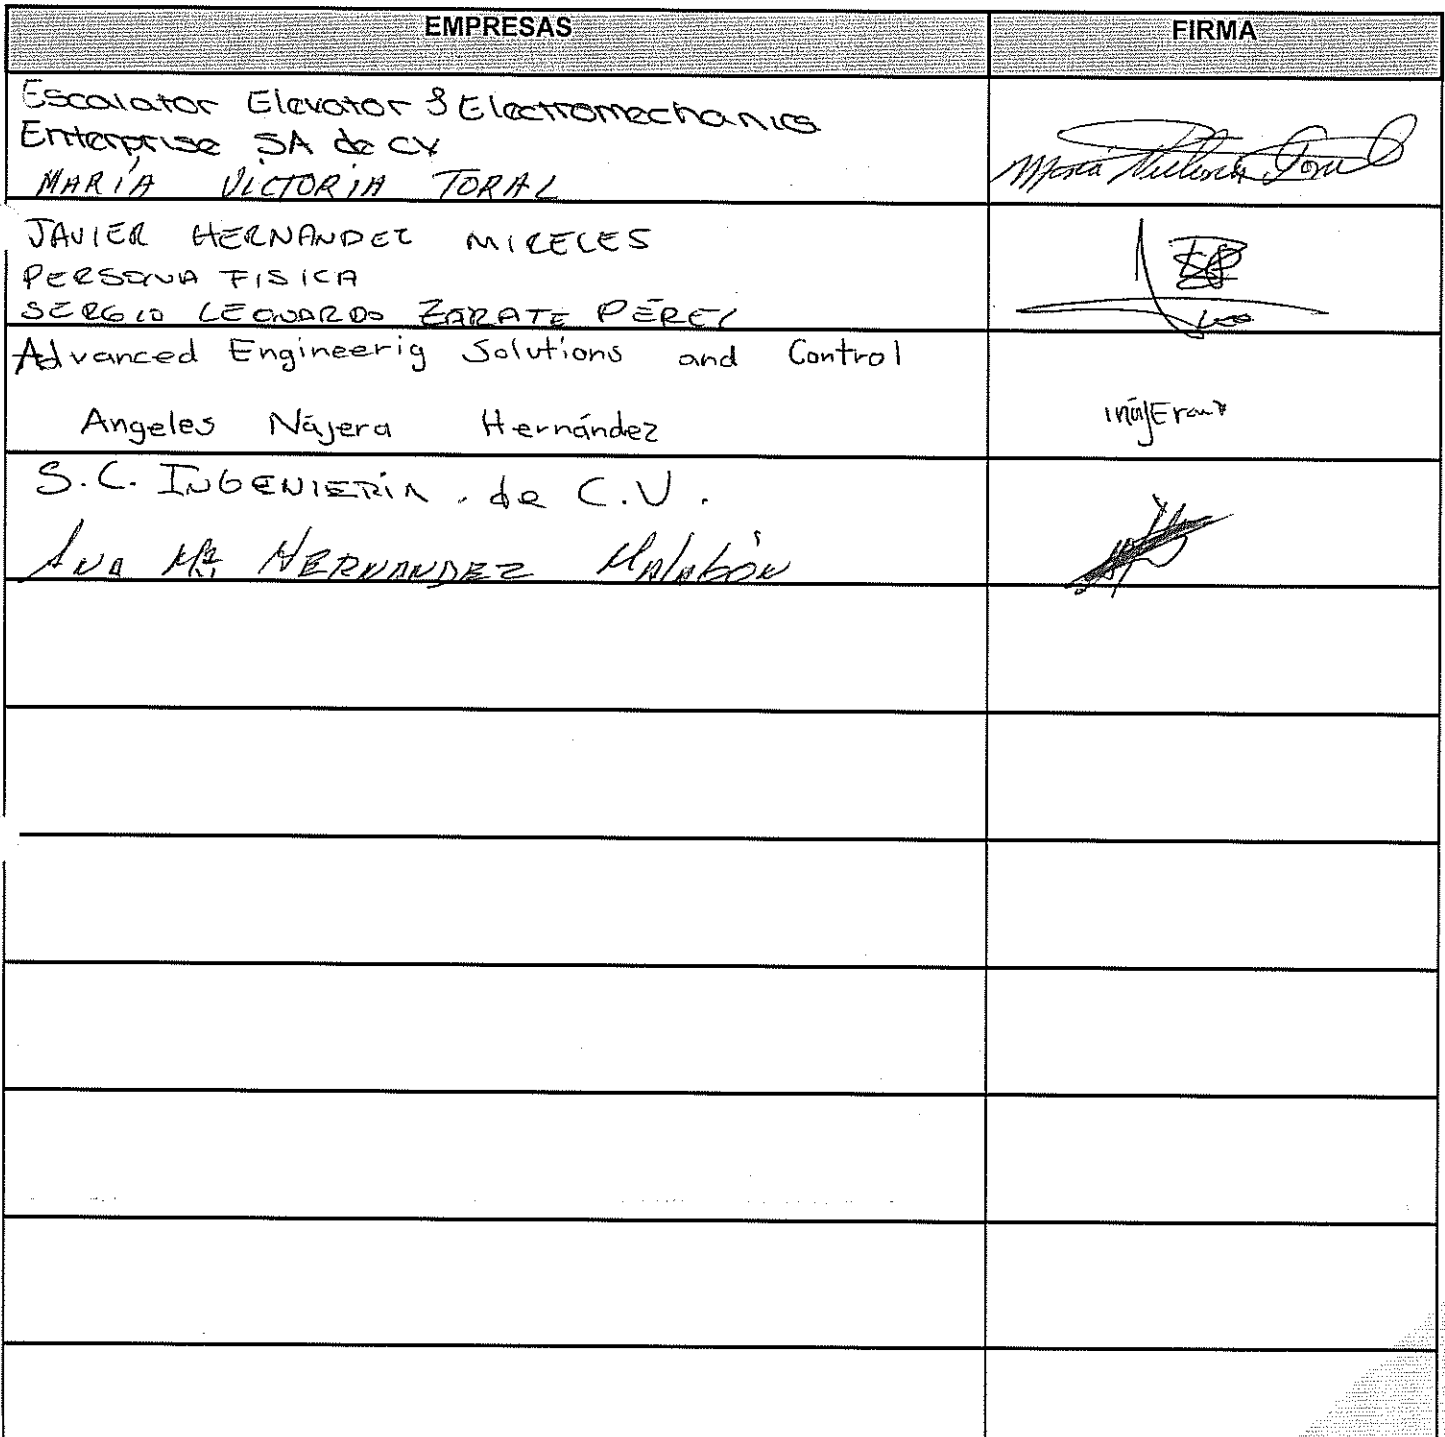 EMPRESAS FIRMA
Escalator Elevator & Electromechanics
Enterprise SA de CV
MARÍA VICTORIA TORAL
María Victoria Toral
JAVIER HERNANDEZ MIRELES
PERSONA FISICA
SERGIO LEONARDO ZARATE PÉREZ
Advanced Engineerig Solutions and Control
Angeles Nájera Hernández
S.C. INGENIERÍA. de C.V.
ANA Ma. HERNANDEZ Malabón